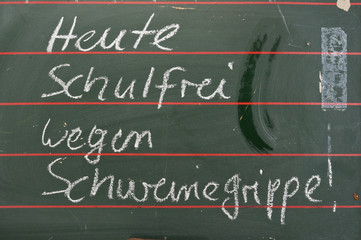 Heute
Schulfrei
wegen
Schweinegrippe!